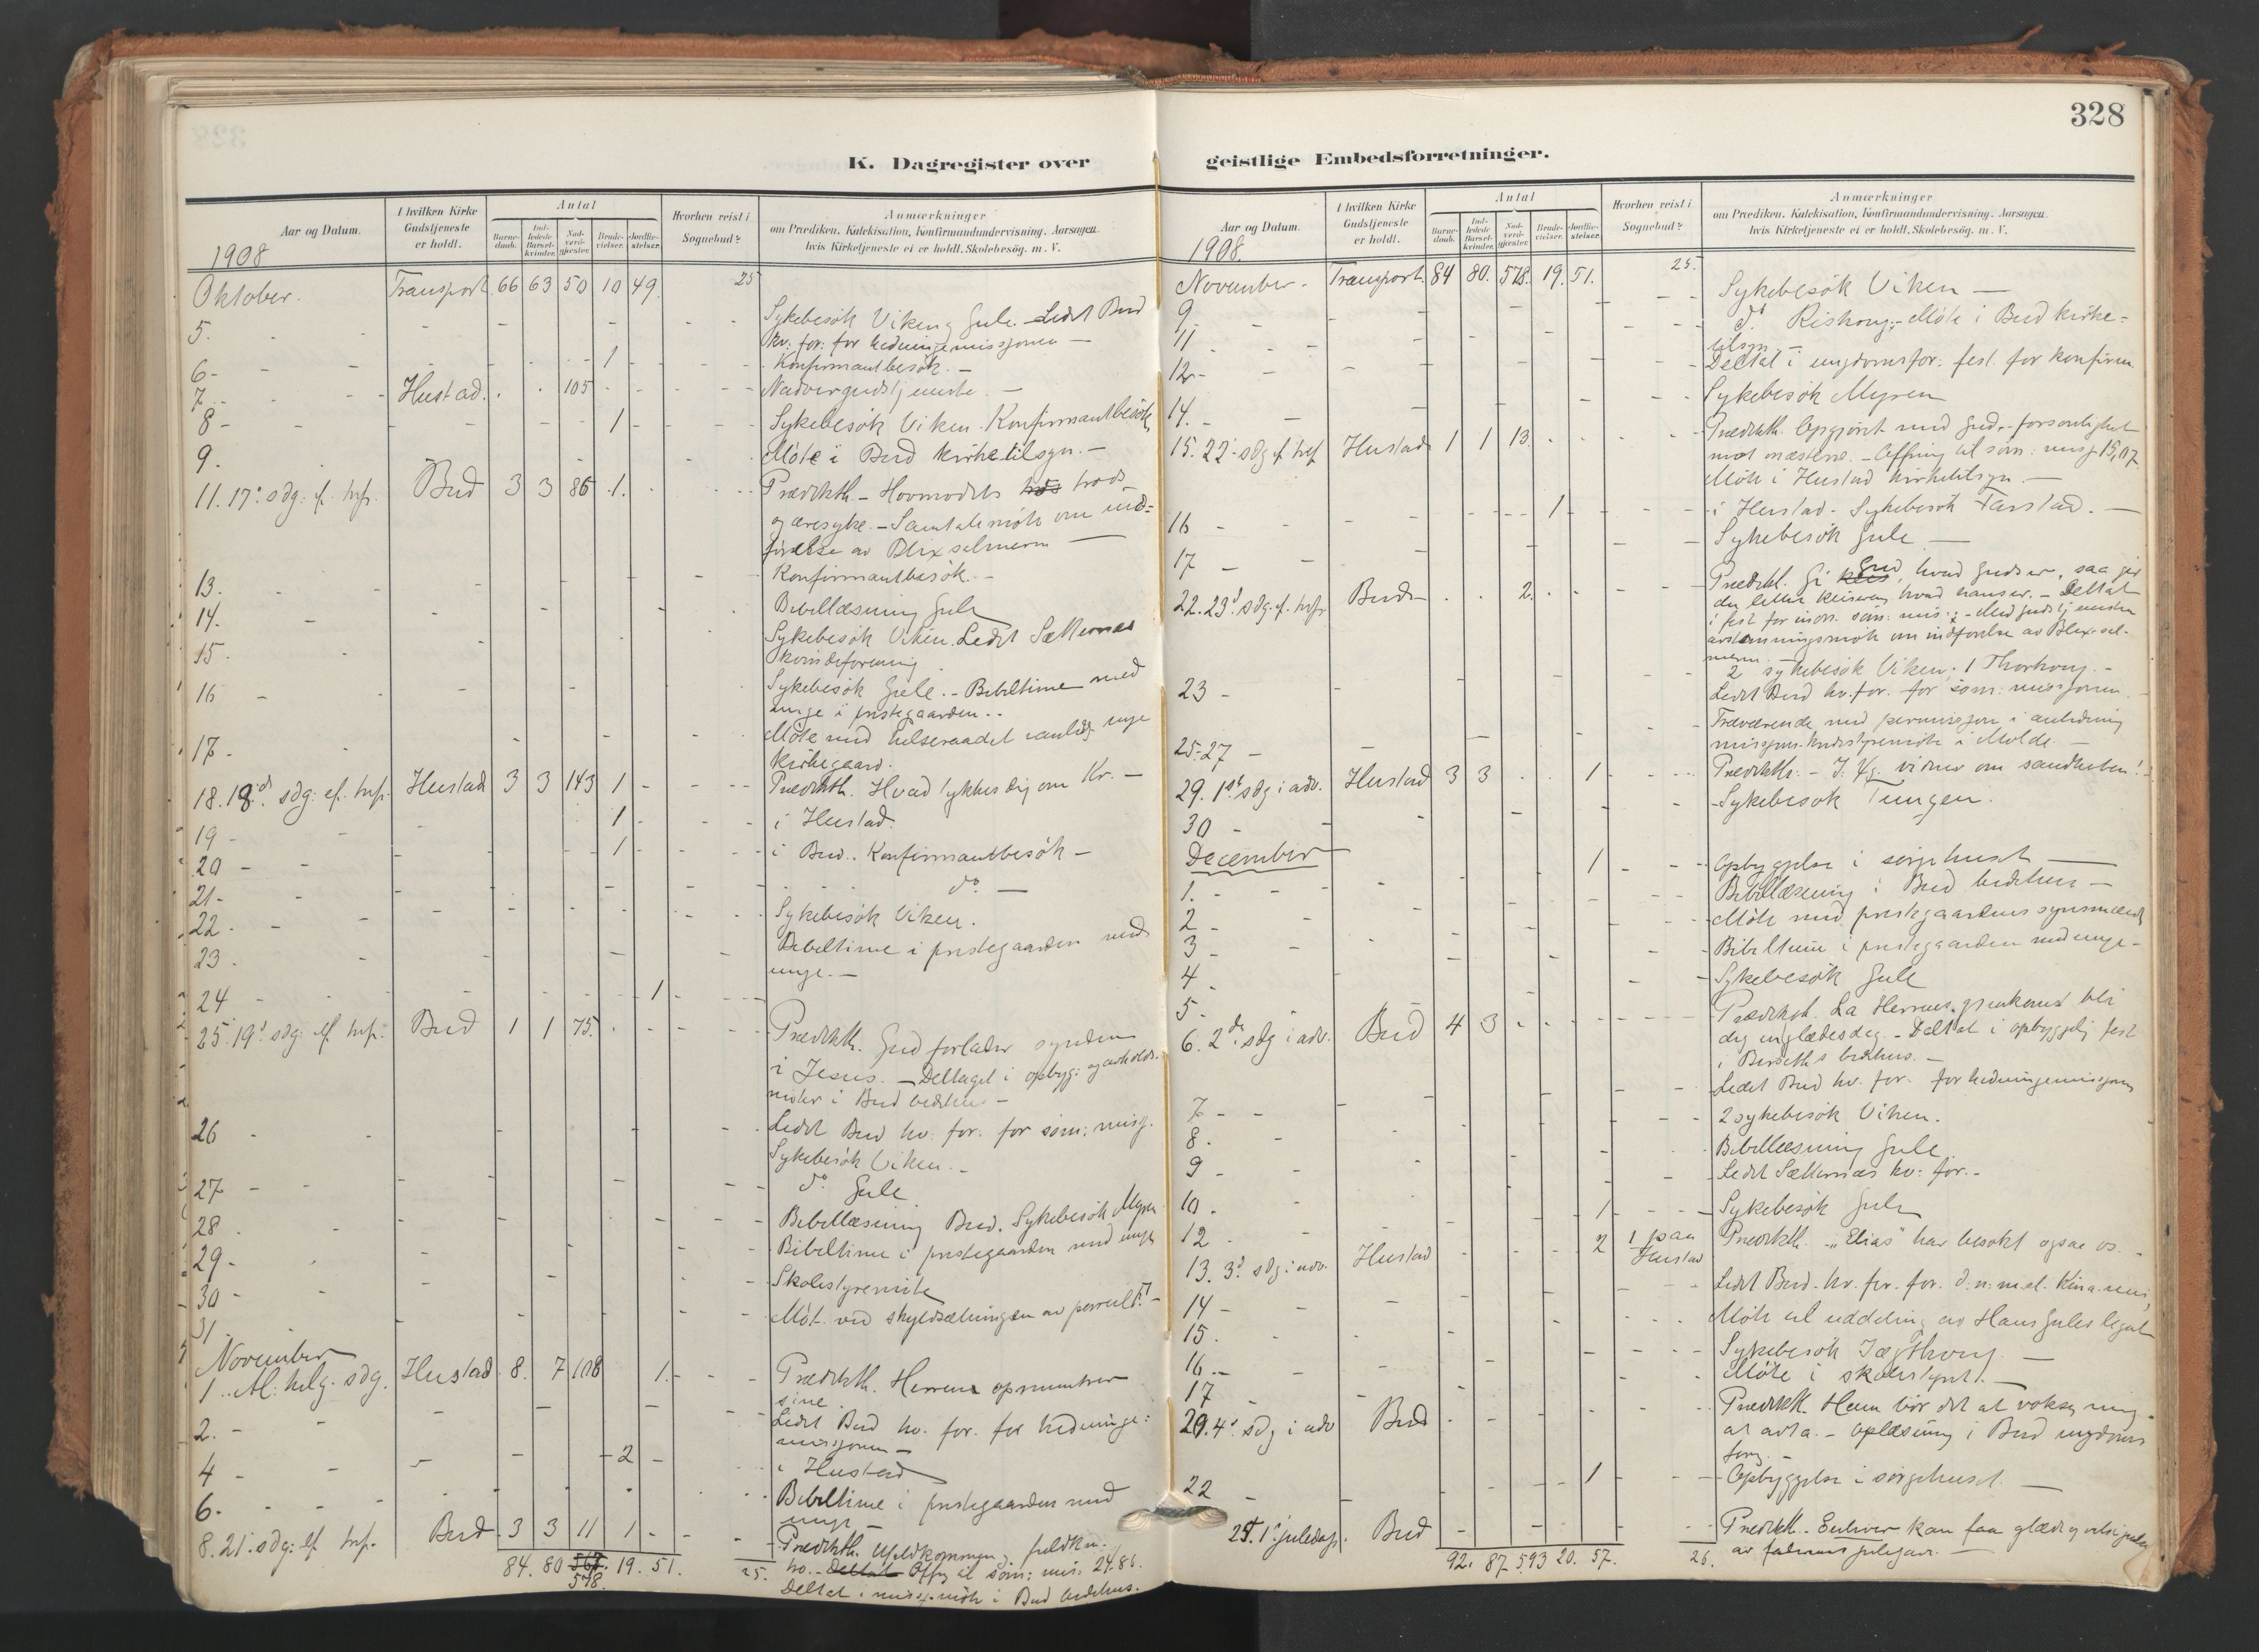 328
K. Dagregister over
Aar og Datum. I hvilken Kirke Gudstjeneste er holdt. Antal Barnedaab. Indledede Barselkvinder. Nadverdgjester. Brudevielser. Jordfæstelser. Hvorhen reist i Sognebud? Anmærkninger om Prædiken, Katekisation, Konfirmandundervisning, Aarsagen, hvis Kirketjeneste ei er holdt, Skolebesög. m. V.
1908
Oktober. Transport 66 63 50 10 49. 25
5. Sykebesök Viken og Gule. Ledet Bud
kv. for. for hedningemissjonen —
6 - 1 Konfirmantbesök. —
7 - Hustad. 105 Nadvergudstjeneste. —
8 - 1 Sykebesök Viken. Konfirmantbesök,
9. Möte i Bud kirketilsyn. —
11. 17de sdg. ef. trf. Bud 3 3 86 1. Prædikth. - Hovmodets trods
og æresyke. - Samtalemöte om ind=
förelse av Blix salmerne —
13. Konfirmantbesök. -
14. Bibellæsning Gule
15. Sykebesök Viken. Ledet Sætternes
kvindeforening
16 - Sykebesök Gule. - Bibeltime med
unge i prestegaarden. -
17 - Möte med helseraadet nye
kirkegaard.
18. 18de sdg. ef. trf. Hustad 3 3 143 1 Prædikth. Hvad tykkes dig om Kr. -
19 - 1 i Hustad.
20 - 1 i Bud. Konfirmantbesök -
21 - do —
22 - Sykebesök Viken.
23. Bibeltime i prestegaarden med
unge. —
24 1
25. 19de sdg. ef. trf. Bud 1 1 75. Prædikth. Gud forlater synden
i Jesus. - Deltaget i opbyg: og avholds-
möter i Bud bedehus -
26 Ledet Bud kv. for. for söm: misj.
Sykebesök Viken. -
27 - do Gule
28. Bibellæsning Bud. Sykebesök Myren
29 - Bibeltime i prestegaarden med unge
30 - Skolestyremöte
31. Möt. ved skyldsætningen av
November
1. Al. helg. sdg. Hustad 8. 7 108 1. Prædikth. Herren opmuntrer
sine.
2. - Ledet Bud kv. for. for hedninge=
missjonen —
4 - 2 i Hustad
6. - Bibeltime i prestegaarden med
unge —
8. 21de sdg. ef. trf. Bud 3 3 11 1 Prædikth. Ufuldkommen, fuldkm.
ho. - Deltat Offer til söm: mis: 24.86.
Deltat i misj. möte i Bud bedehus.
84. 80 567. 19. 51. 25.
578.
geistlige Embedsforretninger.
Aar og Datum. I hvilken Kirke Gudstjeneste er holdt. Antal Barnedaab. Indledede Barselkvinder. Nadverdgjester. Brudevielser. Jordfæstelser. Hvorhen reist i Sognebud? Anmærkninger om Prædiken, Katekisation, Konfirmandundervisning, Aarsagen, hvis Kirketjeneste ei er holdt, Skolebesög. m. V.
1908.
November. Transport. 84 80. 578. 19. 51. 25.
9 Sykebesök Viken —
11 do Riskong. - Möte i Bud kirke=
tilsyn. -
12 - Deltat i ungdomsfor: fest for konfirm
14. Sykebesök Myren
15. 22de sdg. ef. tref. Hustad 1 1 13. Prædikth. Opgjöret med Gud, - forsonlighet
mot næsten. - Offring til söm: misj. 15,07.
Möte i Hustad kirketilsyn. —
16 - 1 i Hustad. Sykebesök Farstad. —
17 - Sykebesök Gule —
22. 23de sdg. ef. trf. Bud 2. Prædikt. Gi Gud, hvad Guds er, saa gir
du lettere keiseren, hvad hans er. - Deltat
i fest for indr. söm: mis: - Med gudstjenesten
avstemningsmöte om indförelse av Blix-sal-
merne.
23 - 2 sykebesök Viken, 1 Thorhong. -
Ledet Bud kv. for. for söm: missjonen.
25-27 - Fraværende med permissjon i anledning
missjons-kredsstyremöte i Molde. —
29. 1ste sdg i adv. Hustad 3 3 1 Prædikth. - J. Kr. vidner om sandheten!
30 - Sykebesök Tungen.
December
1. - 1 Opbyggelse i sörgehuset —
2 - Bibellæsning i Bud bedehus —
3 - Möte med prestegaardens synsmænd
4 - Bibeltime i prestegaarden med unge -
5 - Sykebesök Gule
6. 2den sdg i adv. Bud 4 3 Prædikt. La Herrens gjenkomst bli
dig en glædesdag. - Deltat i opbyggelig fest
i Berseths bedehus. -
7 - Ledet Bud kv. for. for hedningemissjonen
8. 2 sykebesök Viken.
9 - Bibellæsning Gule
10. Ledet Sætternes kv: for. -
12 - 1 Sykebesök Gule
13. 3de sdg i adv. Hustad 2 1 paa Hustad Prædikth. - "Elias" har besökt ogsaa os. -
14 - Ledet Bud kv. for. for. d. n: m. el. Kina mis,
15. Möte til uddeling av Hans Gules legat
16 - Sykebesök Jægthong. —
17 Möte i skolestyret. —
20. 4de sdg i adv Bud Prædikth. Ham bör det at vokse, mig
at avta. - Oplæsning i Bud ungdoms
foren. -
22 - 1 Opbyggelse i sörgehuset. —
25. 1ste juledag. Bud Prædikth. Enhver kan faa glæde
av julegave. —
92. 87. 593 20. 57. 26.